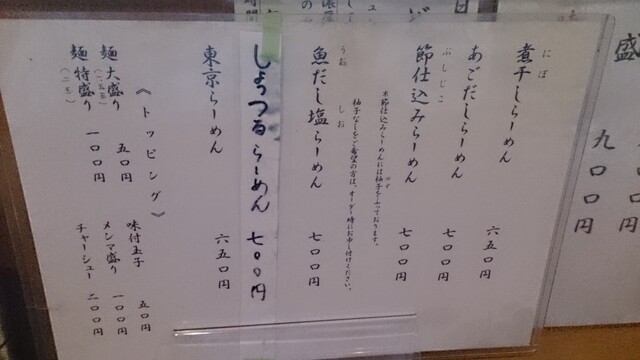 盛
九〇〇円
煮干しらーめん 六五〇円
にぼ
あごだしらーめん 七〇〇円
節仕込みらーめん 七〇〇円
ぶしじこ
※節仕込みらーめんには柚子をふっております。
ゆず
柚子なしをご希望の方は、オーダー時にお申し付けください。
魚だし塩らーめん 七〇〇円
うお しお
しょっつるらーめん 七〇〇円
東京らーめん 六五〇円
《トッピング》
麺大盛り 五〇円
麺特盛り 一〇〇円
味付玉子 五〇円
メンマ盛り 一〇〇円
チャーシュー 二〇〇円